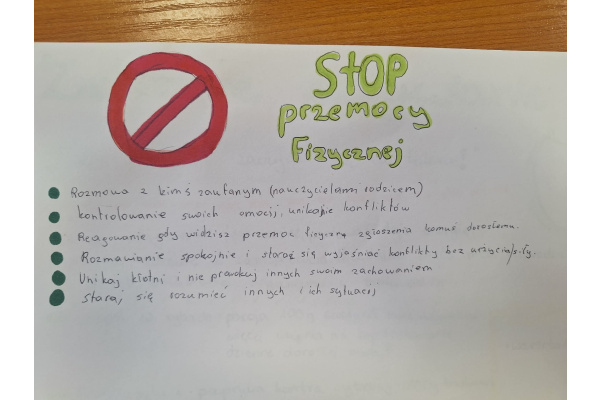 STOP
przemocy
Fizycznej
Rozmowa z kimś zaufanym (nauczycielami rodzicem)
kontrolowanie swoich emocji, unikanie konfliktów
Reagowanie gdy widzisz przemoc fizyczną zgłoszenia komuś dorosłemu.
Rozmawianie spokojnie i staraj się wyjaśniać konflikty bez użycia siły.
Unikaj kłótni i nie prowokuj innych swoim zachowaniem
Staraj się rozumieć innych i ich sytuację